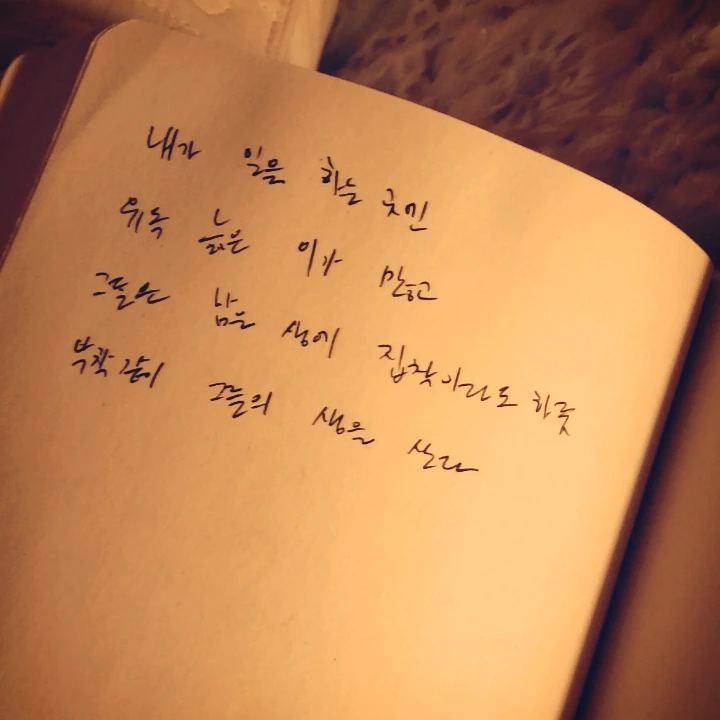 내가 일을 하는 곳엔
유독 늙은 이가 많고
그들은 남은 생에 집착이라도 하듯
부쩍 같이 그들의 생을 산다